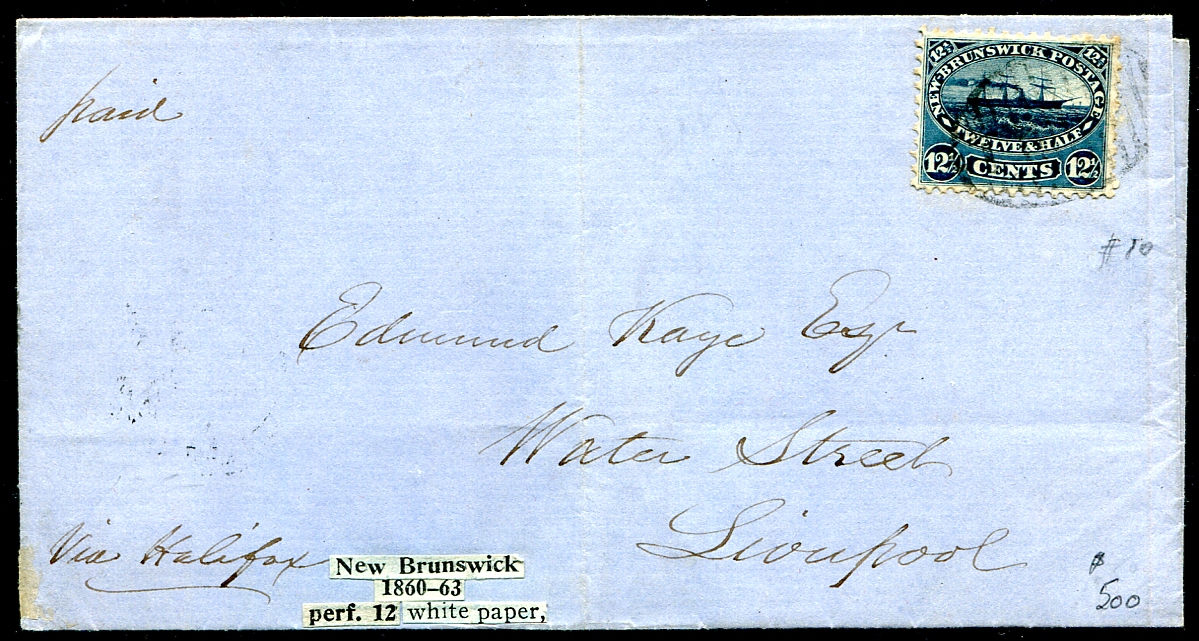 paid
12½ 12½
NEW-BRUNSWICK POSTAGE
TWELVE & HALF
12½ CENTS 12½
#10
Edmund Kaye Esqr
Water Street
Liverpool
Via Halifax
New Brunswick
1860–63
perf. 12 white paper,
$
500